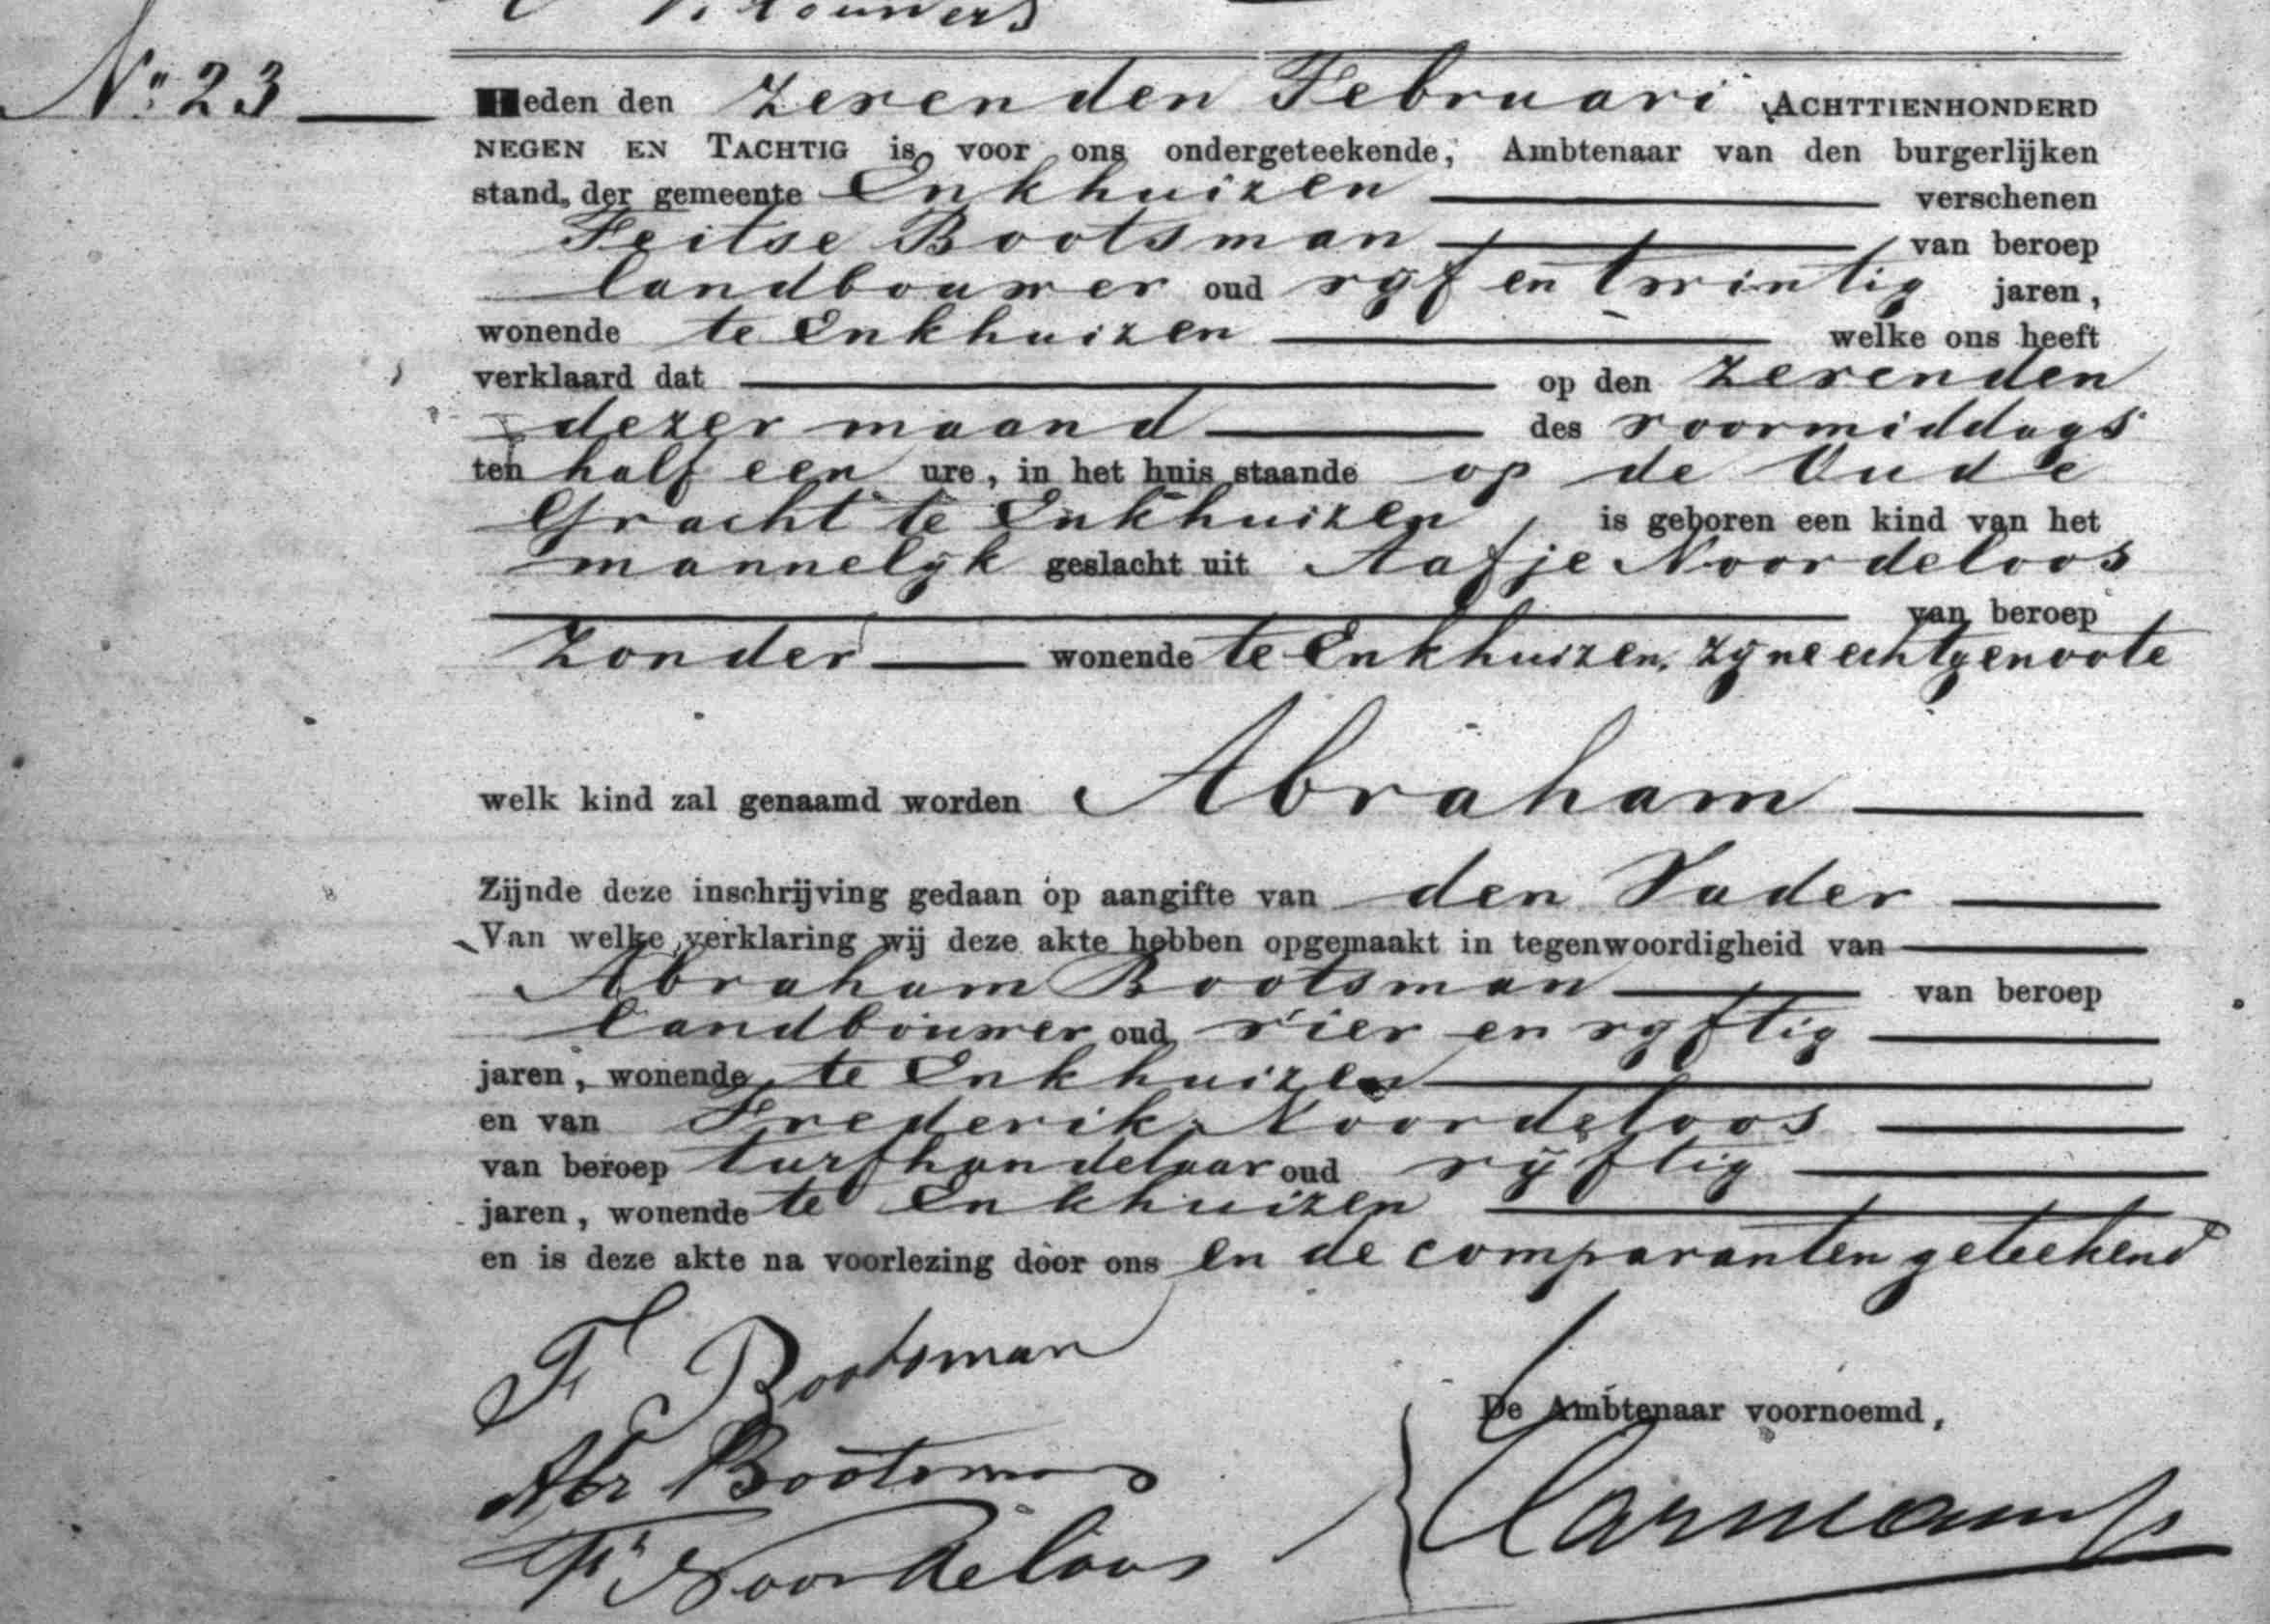 Nº 23
Heden den zevenden Februari ACHTTIENHONDERD
NEGEN EN TACHTIG is voor ons ondergeteekende, Ambtenaar van den burgerlijken
stand, der gemeente Enkhuizen verschenen
Feitse Bootsman van beroep
landbouwer oud vijf en twintig jaren,
wonende te Enkhuizen welke ons heeft
verklaard dat op den zevenden
dezer maand des voormiddags
ten half een ure, in het huis staande op de Oude
Gracht te Enkhuizen, is geboren een kind van het
mannelijk geslacht uit Aafje Noordeloos
van beroep
zonder wonende te Enkhuizen, zijne echtgenoote
welk kind zal genaamd worden Abraham
Zijnde deze inschrijving gedaan op aangifte van den Vader
Van welke verklaring wij deze akte hebben opgemaakt in tegenwoordigheid van
Abraham Bootsman van beroep
landbouwer oud vier en vijftig
jaren, wonende te Enkhuizen
en van Frederik Noordeloos
van beroep turfhandelaar oud vijftig
jaren, wonende te Enkhuizen
en is deze akte na voorlezing door ons en de comparanten geteekend
F Bootsman
De Ambtenaar voornoemd,
Abr Bootsman
F Noordeloos